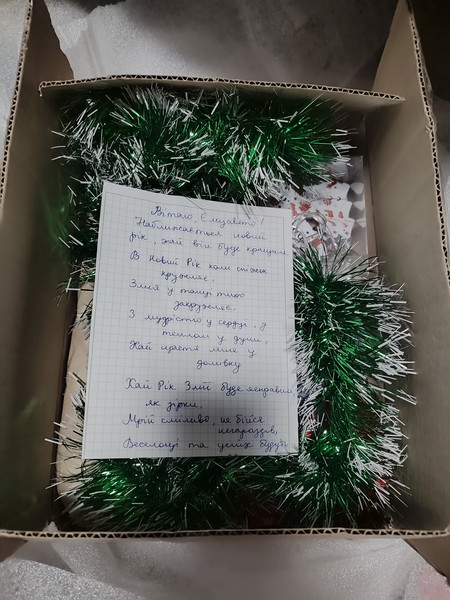 Вітаю, Єлизавето!
Наближається новий
рік, хай він буде кращим
В Новий Рік коли сніжок
кружляє,
Змія у танці тихо
закружляє.
З мудрістю у серці, з
теплом у душі,
Хай щастя лине у
домівку
Хай Рік Змії буде яскравим
як зірки,
Мрій сміливо, не бійся
негараздів,
Веселощі та успіх будуть